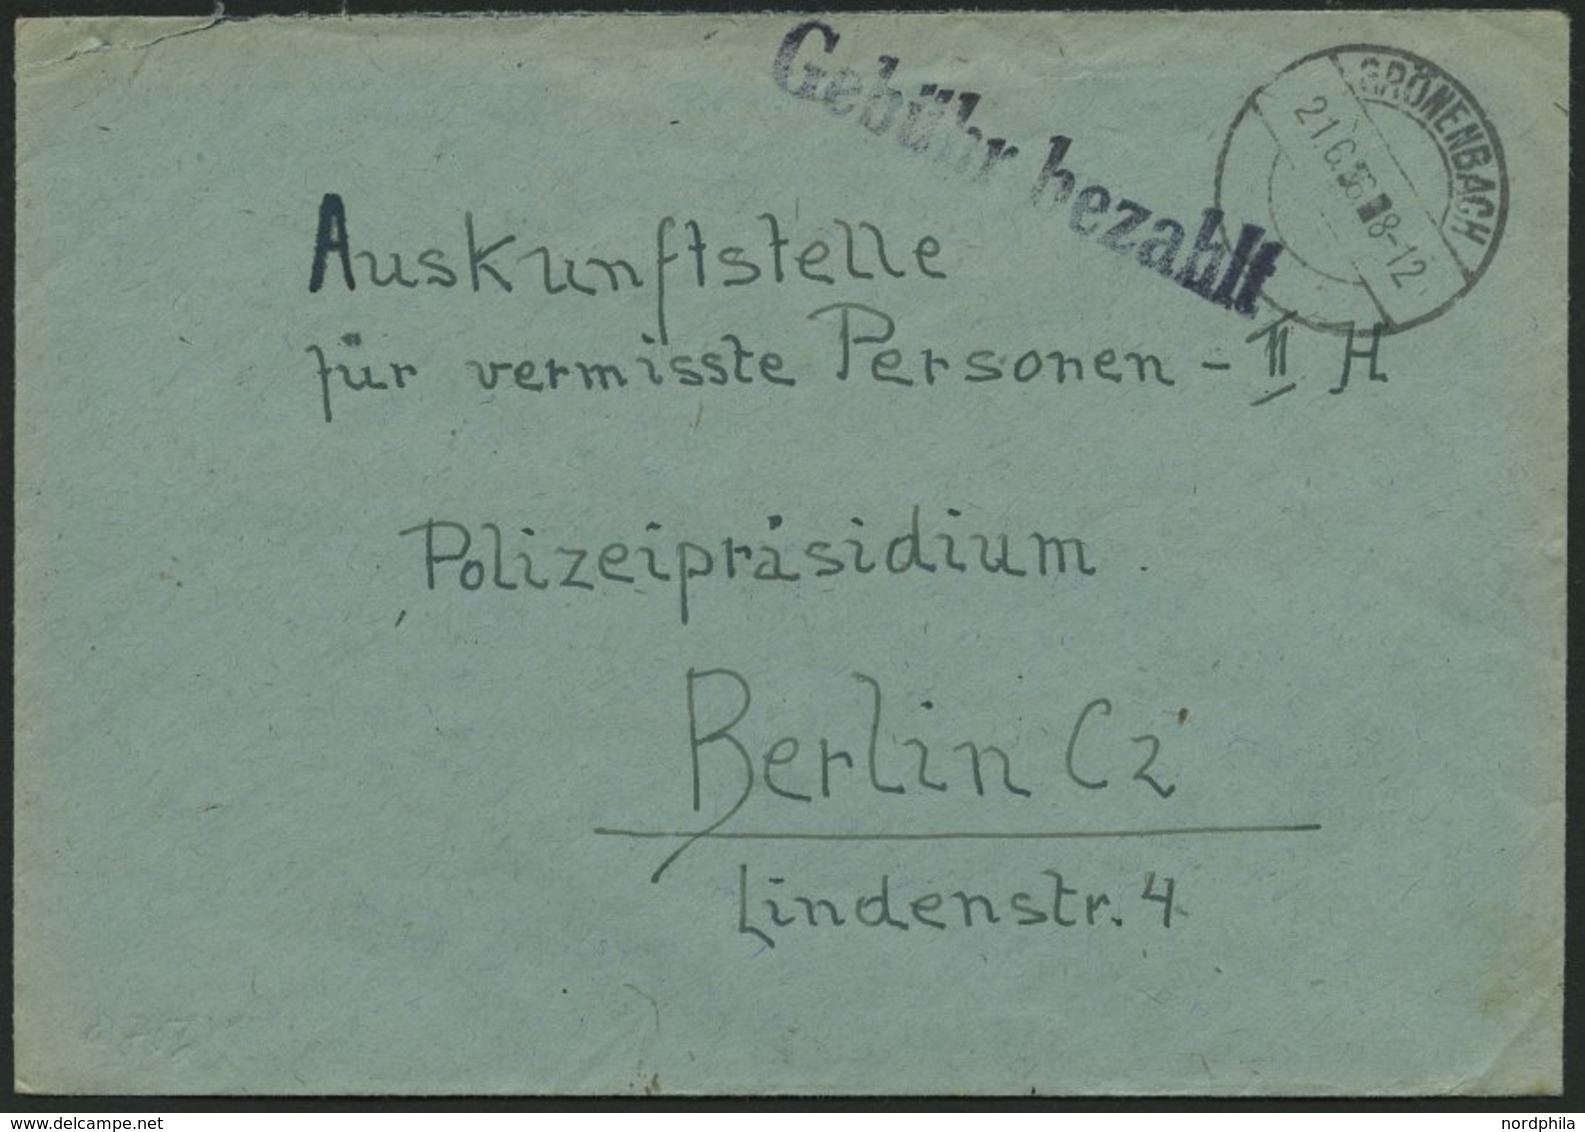 Gebühr bezahlt
GRÖNENBACH
8-12
Auskunftstelle
für vermisste Personen - II H
Polizeipräsidium
Berlin C2
Lindenstr. 4
www.delcampe.net
nordphila